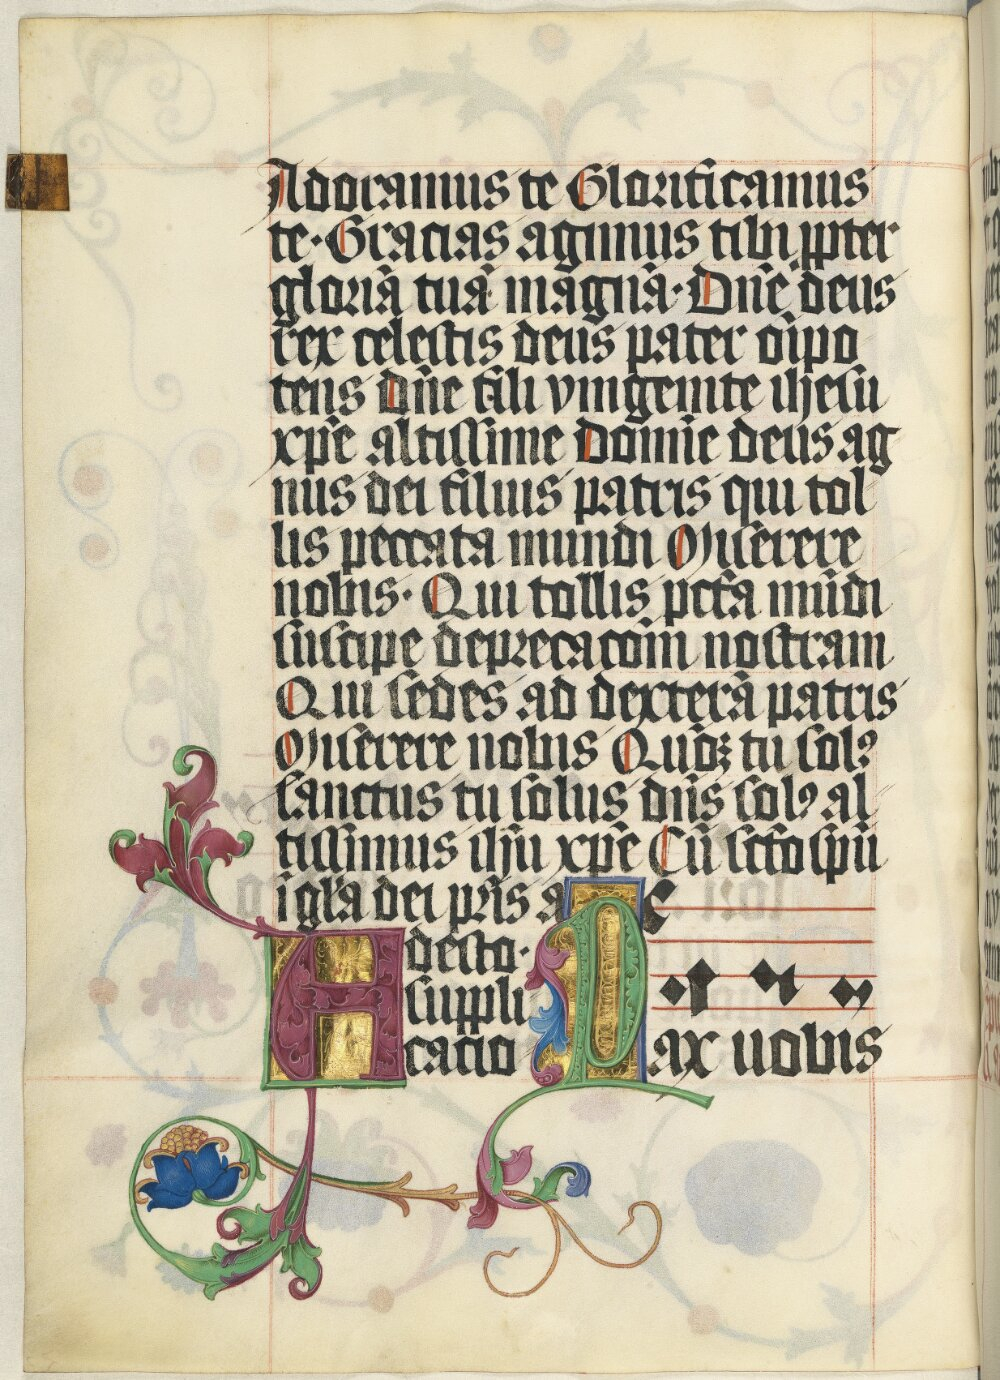 Adoramus te Glorificamus
te · Gracias agimus tibi ꝓpter
gloriā tuā magnā · Dn̄e deus
rex celestis deus pater oīpo
tens Dn̄e fili vnigenite ihesu
xp̄e altissime Domīe deus ag
nus dei filius patris qui tol
lis peccata mundi Miserere
nobis · Qui tollis pctā mūdi
suscipe deprecacōm̄ nostram
Qui sedes ad dexterā patris
Miserere nobis Quōꝫ tu solꝰ
sanctus tu solus dn̄s solꝰ al
tissimus ihū xp̄e Cū sctō spū
i gl̄a dei pr̄is a
desto ·
suppli
catio
Pax uobis